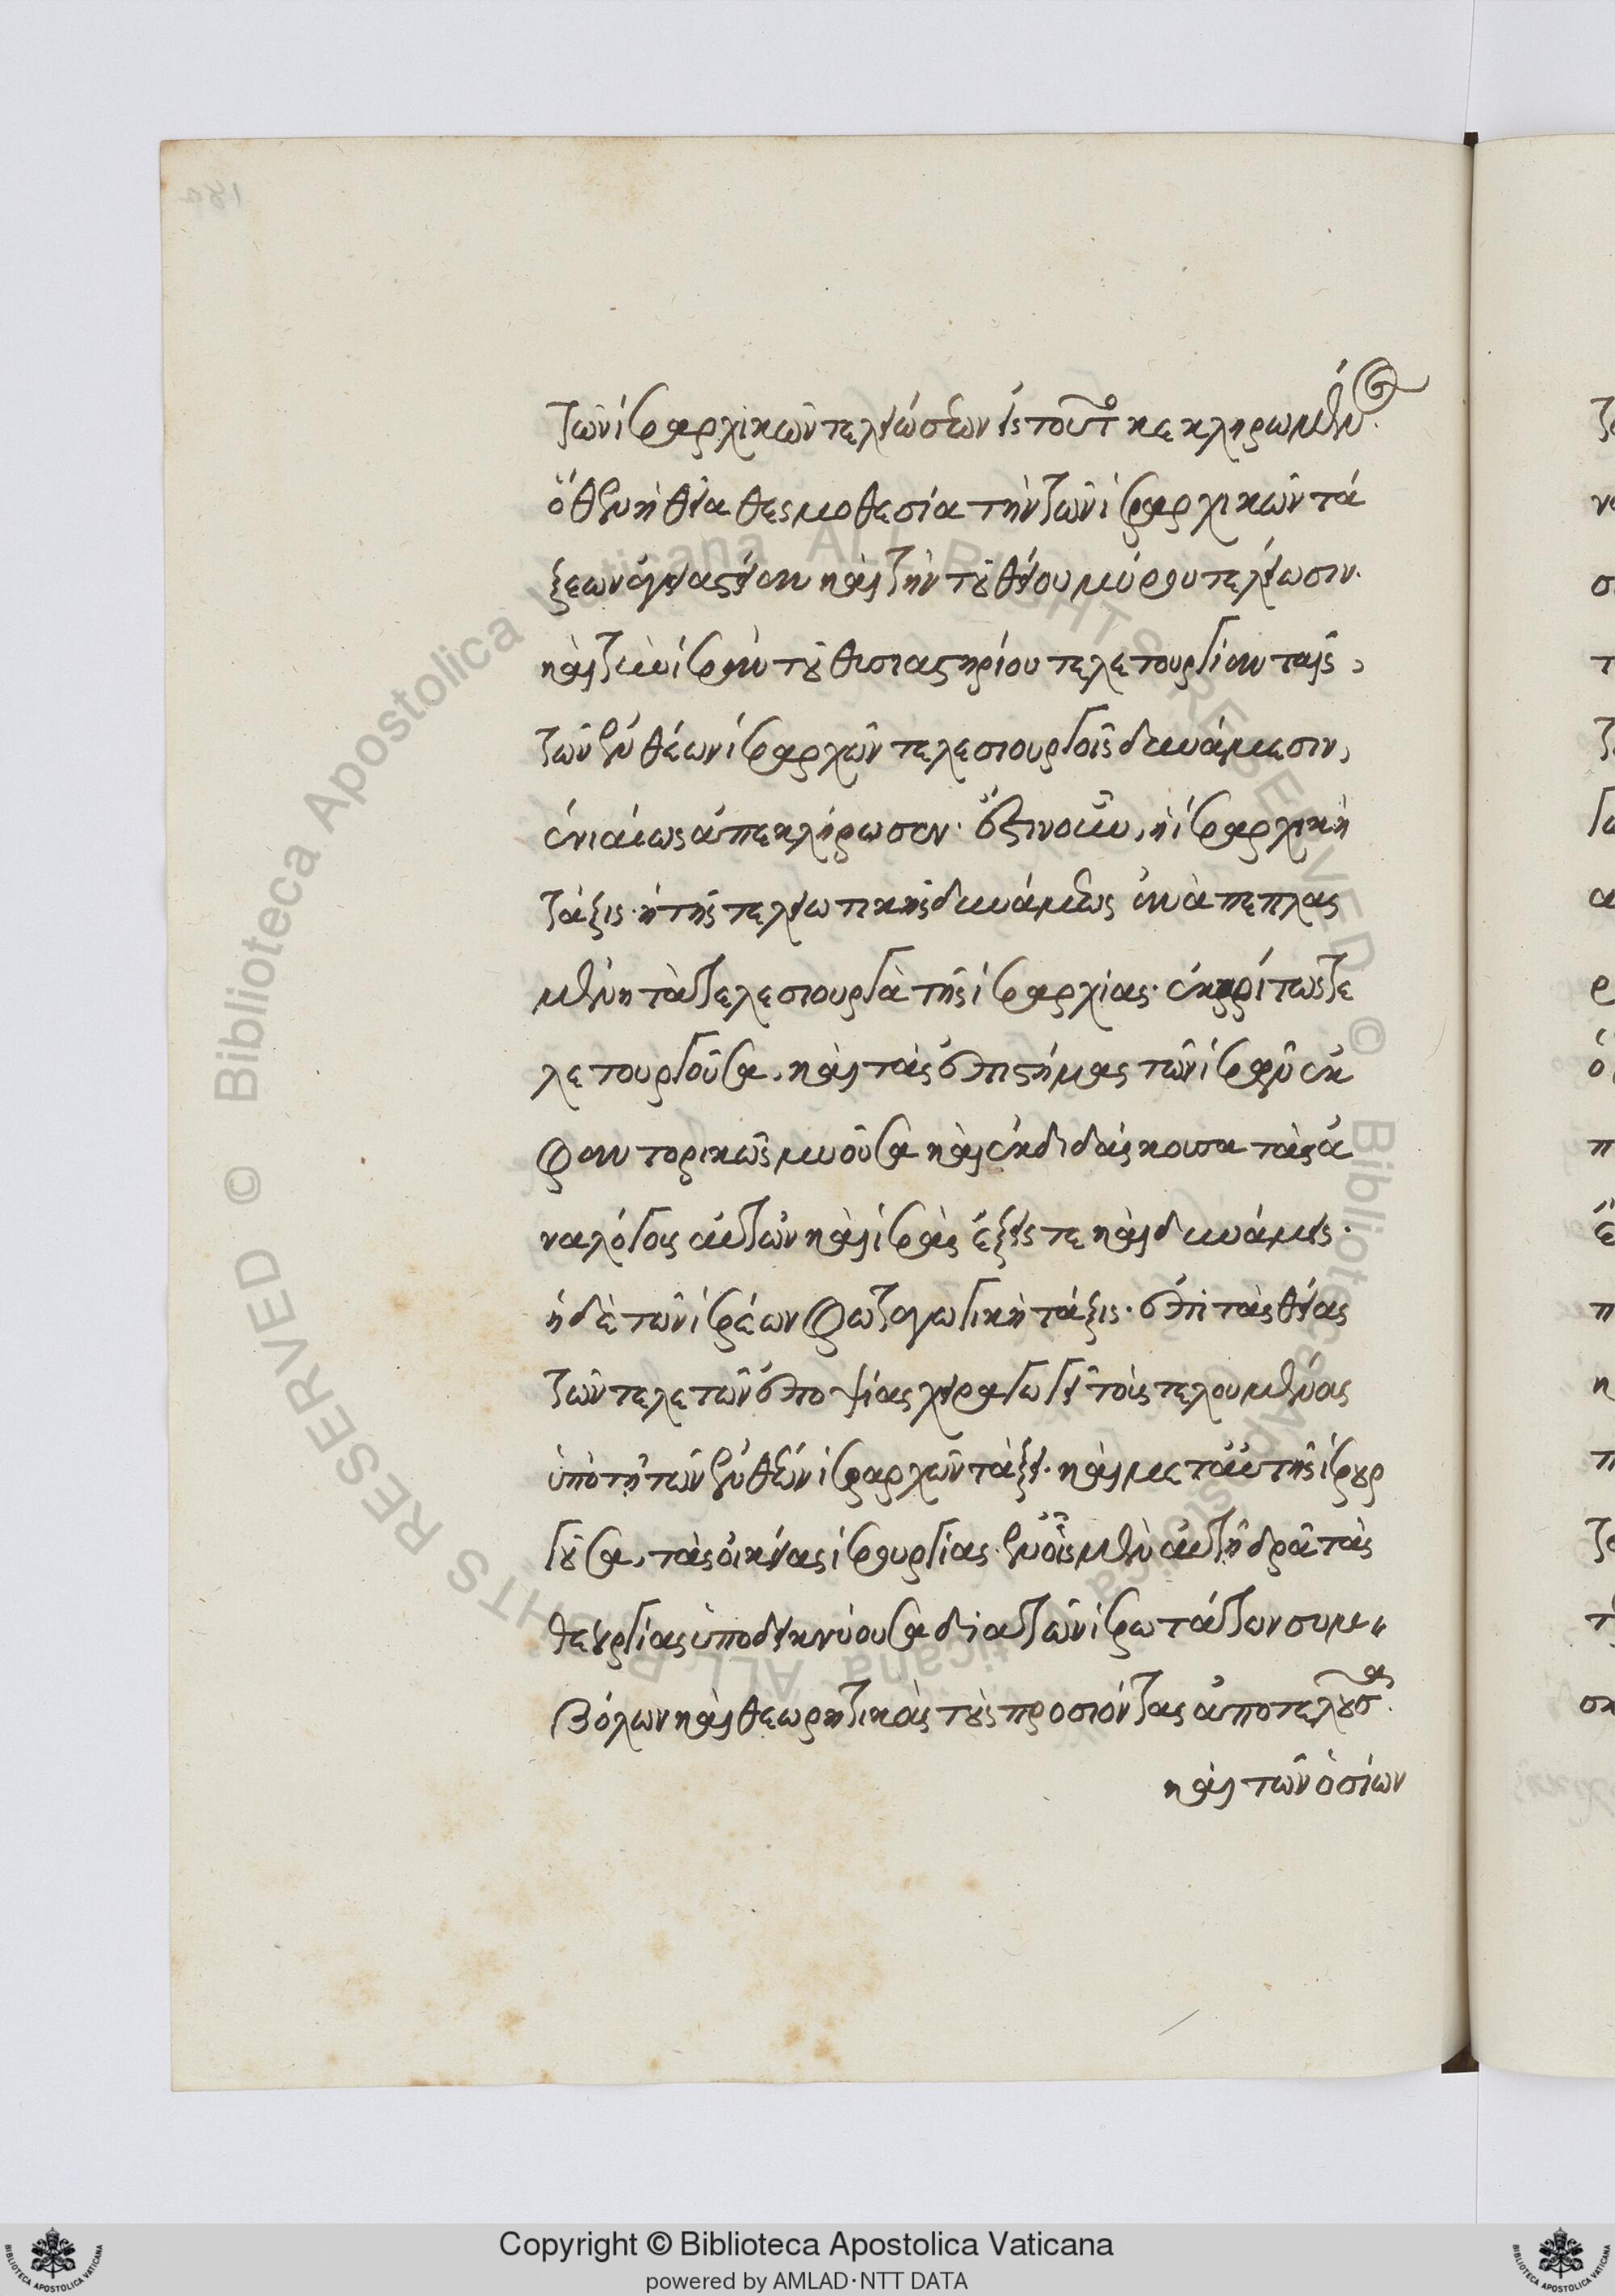 τῶν ἱεραρχικῶν τελειώσεων εἰς τοῦτο κεκληρωμένων.
ὅθεν ἡ θεία θεσμοθεσία τὴν τῶν ἱεραρχικῶν τά
ξεων ἁγιαστείαν καὶ τὴν τοῦ θείου μύρου τελείωσιν.
καὶ τὴν ἱερὰν τοῦ θυσιαστηρίου τελετουργίαν ταῖς,
τῶν ἐνθέων ἱεραρχῶν τελεσιουργοῖς δυνάμεσιν,
ἑνιαίως ἀπεκλήρωσεν. ἔστιν οὖν, ἡ ἱεραρχικὴ
τάξις. ἡ τῆς τελειωτικῆς δυνάμεως ἀναπεπλας
μένη τὰ τελεσιουργὰ τῆς ἱεραρχίας. ἐκκρίτως τε
λετουργοῦσα. καὶ τὰς ἐπιστήμας τῶν ἱερῶν ἐκ
φαντορικῶς μυοῦσα καὶ ἐκδιδάσκουσα τὰς ἀ
ναλόγους αὐτῶν καὶ ἱερὰς ἕξεις τε καὶ δυνάμεις.
ἡ δὲ τῶν ἱερέων φωταγωγικὴ τάξις. ἐπὶ τὰς θείας
τῶν τελετῶν ἐποψίας χειραγωγεῖ τοὺς τελουμένους
ὑπὸ τῇ τῶν ἐνθέων ἱεραρχῶν τάξει. καὶ μετ' αὐτῆς ἱερουρ
γοῦσα, τὰς οἰκείας ἱερουργίας. ἐν οἷς μὲν αὐτὴ δρᾷ τὰς
θεουργίας ὑποδεικνύουσα διὰ τῶν ἱερωτάτων συμ
βόλων καὶ θεωρητικοὺς τοὺς προσιόντας ἀποτελοῦσα.
καὶ τῶν ὁσίων
Copyright © Biblioteca Apostolica Vaticana
powered by AMLAD·NTT DATA